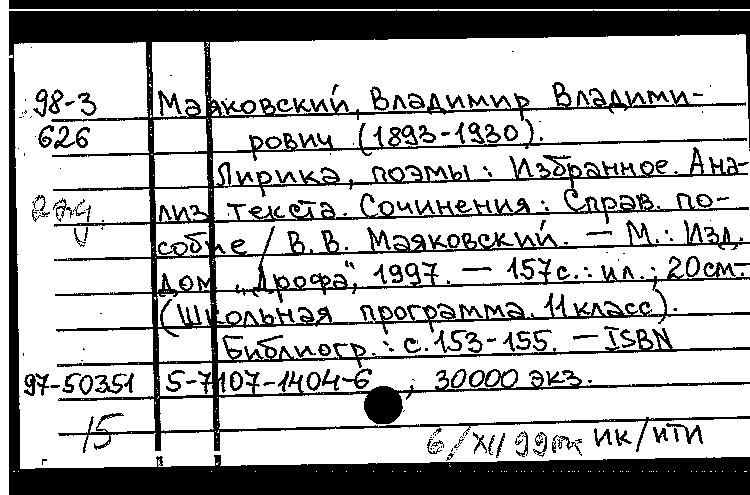 98-3 Маяковский, Владимир Владими-
626 рович (1893-1930).
Лирика, поэмы: Избранное. Ана-
лиз текста. Сочинения: Справ. по-
собие / В. В. Маяковский. — М.: Изд.
дом „Дрофа", 1997. — 157с.: ил.; 20см.-
(Школьная программа. 11 класс).
Библиогр.: с.153-155. — ISBN
97-50351 5-7107-1404-6 ; 30000 экз.
15
6/XII 99 ИК/ИТИ